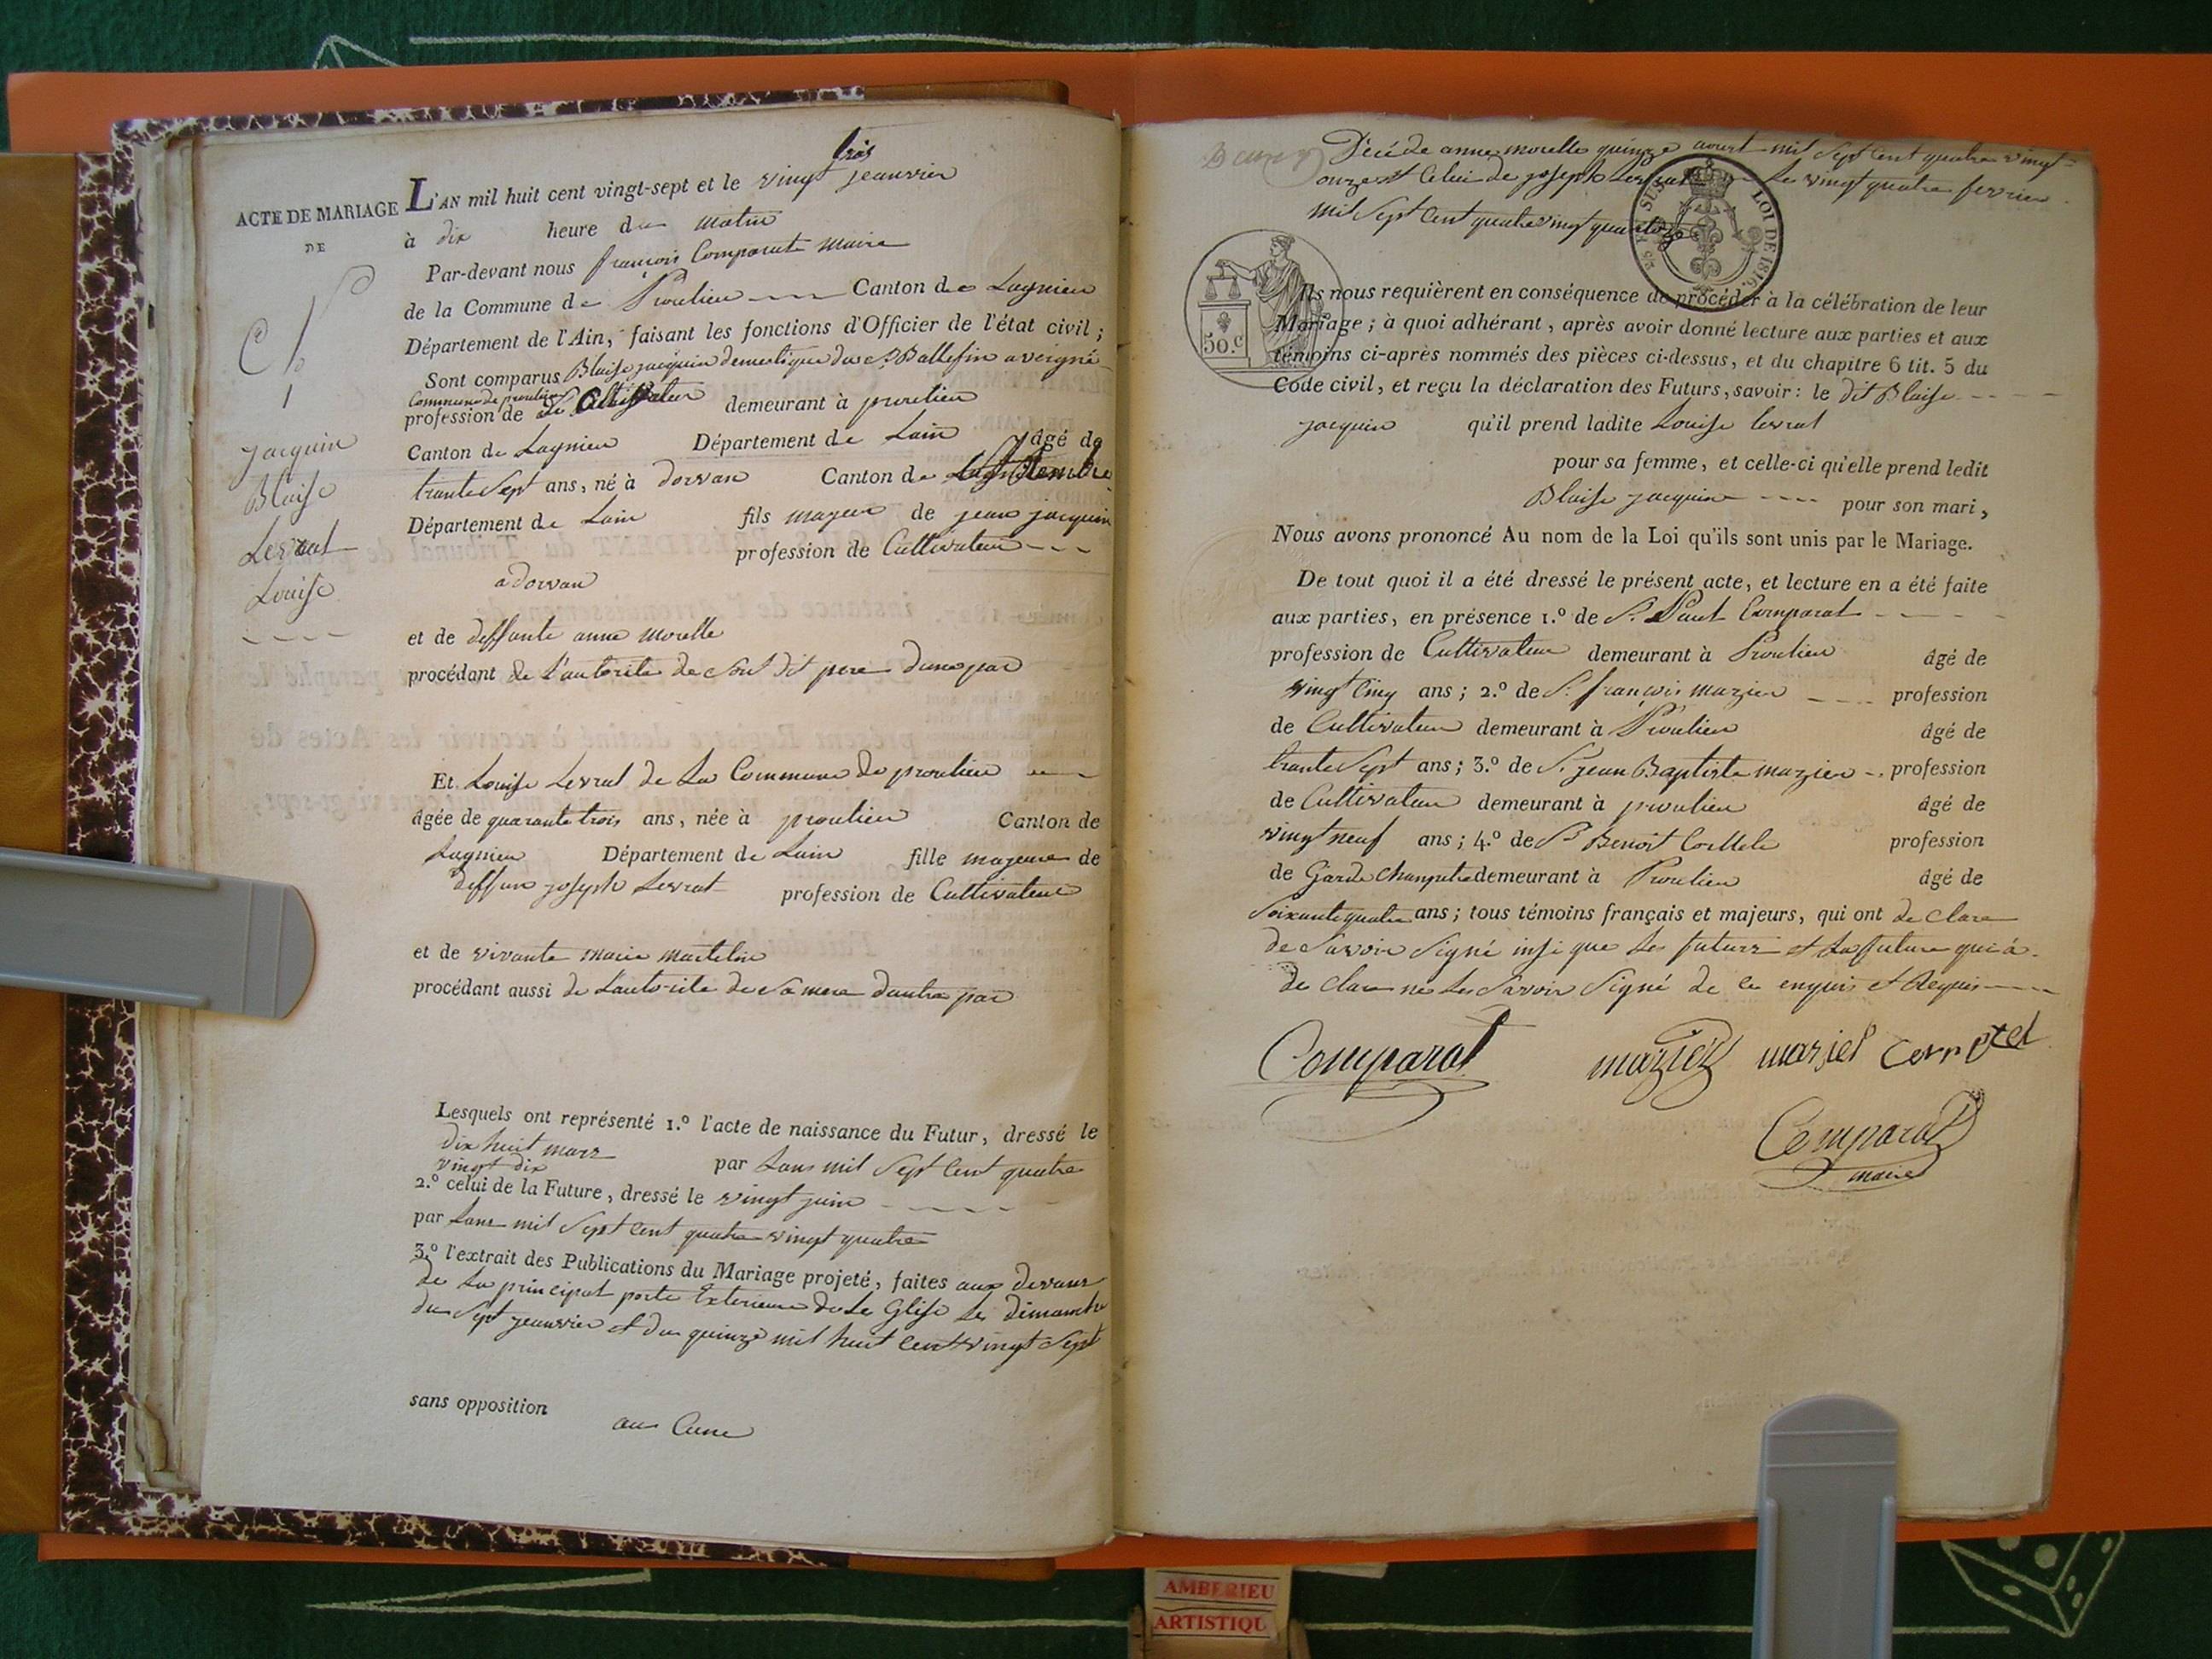 ACTE DE MARIAGE
DE
N.o 1
jacquin
Blaise
Levrat
Louise
trois
L'AN mil huit cent vingt-sept et le vingt jeanvier
à dix heure du matin
Par-devant nous françois Comparat maire
de la Commune de Proulieu Canton de Lagnieu
Département de l'Ain, faisant les fonctions d'Officier de l'état civil ;
Sont comparus Blaise jacquin demestique du Sr Ballefin a veigné
Commune de proulieu
profession de Cultivateur demeurant à proulieu
Canton de Lagnieu Département de Lain âgé de
trante Sept ans, né à dorvan Canton de
Département de Lain fils mageur de jean jacquin
profession de Cultivateur
a dorvan
et de deffunte anne morelle
procédant de l'autorite de Son dit pere dune par
Et Louise Levrat de La Commune de proulieu
âgée de quarante trois ans, née à proulieu Canton de
Lagnieu Département de Lain fille mageure de
deffun joseph Levrat profession de Cultivateur
et de vivante marie martelin
procédant aussi de Lautorite de Sa mere dautre par
Lesquels ont représenté 1.º l'acte de naissance du Futur, dressé le
dix huit mars par Lans mil Sept Cent quatre
vingt dix
2.º celui de la Future, dressé le vingt juin
par Lans mil Sept Cent quatre vingt quatre
3.º l'extrait des Publications du Mariage projeté, faites aux devans
de La principal porte Exterieure de Le Glise Les dimanche
du Sept jeanvier et du quinze mil huit Cent vingt Sept
sans opposition
au Cune
Décé de anne morelle quinze aoust mil Sept Cent quatre vingt
onze et Celui de joseph Levrat Le vingt quatre fevrier
mil Sept Cent quatre vingt quatorze
LOI DE 1816
50.c
Ils nous requièrent en conséquence de procéder à la célébration de leur
Mariage ; à quoi adhérant, après avoir donné lecture aux parties et aux
témoins ci-après nommés des pièces ci-dessus, et du chapitre 6 tit. 5 du
Code civil, et reçu la déclaration des Futurs, savoir : le dit Blaise
jacquin qu'il prend ladite Louise levrat
pour sa femme, et celle-ci qu'elle prend ledit
Blaise jacquin pour son mari,
Nous avons prononcé Au nom de la Loi qu'ils sont unis par le Mariage.
De tout quoi il a été dressé le présent acte, et lecture en a été faite
aux parties, en présence 1.º de Sr Paul Comparat
profession de Cultivateur demeurant à Proulieu âgé de
vingt Cinq ans ; 2.º de Sr françois mazier profession
de Cultivateur demeurant à Proulieu âgé de
trante Sept ans ; 3.º de Sr jean Baptiste mazier profession
de Cultivateur demeurant à proulieu âgé de
vingt neuf ans ; 4.º de Sr Benoit profession
de Garde Champetre demeurant à Proulieu âgé de
Soixante quatre ans ; tous témoins français et majeurs, qui ont de Clare
de Savoir Signé insi que Les futurs et La future qui à
de Clare ne Les Savoir Signé de Ce enquis et Requis
Comparat mazier mazier
Comparat
maire
AMBERIEU
ARTISTIQU